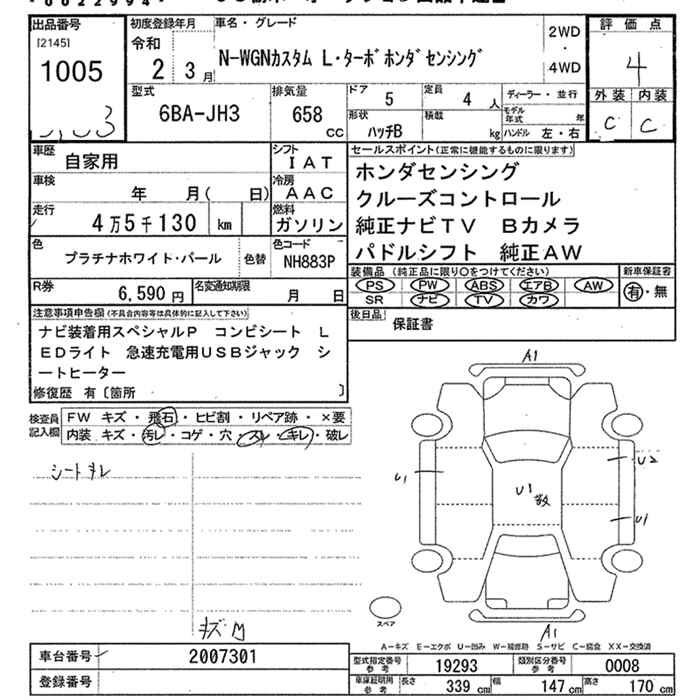 0022994
出品番号
[2145]
1005
初度登録年月
令和
2 3月
車名・グレード
N-WGNカスタム L・ターボホンダセンシング
2WD
・
4WD
評価点
4
外装 内装
C C
型式
6BA-JH3
排気量
658
CC
ドア
5
定員
4 人
形状
ハッチB
積載
kg
ディーラー・並行
モデル年式 年
ハンドル 左・右
車歴
自家用
シフト
IAT
車検
年 月( 日)
冷房
AAC
走行
4万5千130 km
燃料
ガソリン
色
プラチナホワイト・パール
色替
色コード
NH883P
R券
6,590円
名変通知期限
月 日
セールスポイント(正常に機能するものに限ります)
ホンダセンシング
クルーズコントロール
純正ナビTV Bカメラ
パドルシフト 純正AW
装備品(純正品に限り○をつけてください)
PS PW ABS エアB AW
SR ナビ TV カワ
新車保証書
有・無
後日品
保証書
注意事項申告欄(不具合内容等は具体的に記入して下さい)
ナビ装着用スペシャルP コンビシート L
EDライト 急速充電用USBジャック シ
ートヒーター
修復歴 有〔箇所 〕
検査員記入欄
FW キズ・飛石・ヒビ割・リペア跡・×要
内装 キズ・汚レ・コゲ・穴・スレ・キレ・破レ
シートキレ
キズM
A1
U1
U2
U1 数
U1
A1
スペア
A-キズ E-エクボ U-凹み W-補修跡 S-サビ C-腐食 XX-交換済
車台番号
2007301
登録番号
型式指定番号 参考
19293
類別区分番号 参考
0008
車庫証明用 参考
長さ 339 cm
幅 147 cm
高さ 170 cm